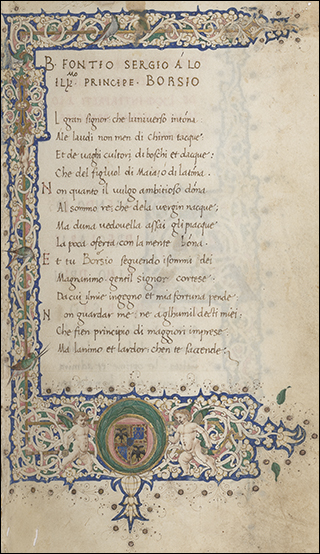 B. FONTIO SERGIO Á LO
ILL.MO PRINCIPE. BORSIO
I l gran signor che luniverso intóna
Ale laudi non men di Chiron tacque
Et de vaghi cultori di boschi et dacque:
Che del figluol di Maia, o di latóna.
N on quanto il vulgo ambitioso dóna
Al sommo re, che dela vergin nacque,
Ma duna vedovella assai gli piacque
La poca oferta con la mente bóna.
E t tu Borsio seguendo isommi dei
Magnanimo gentil signor cortese
Da cui ingegno et ma fortuna pende
N on guardar me, ne aglhumil decti miei:
Che fien principio di maggiori imprese
Ma lanimo et lardor chen te saccende